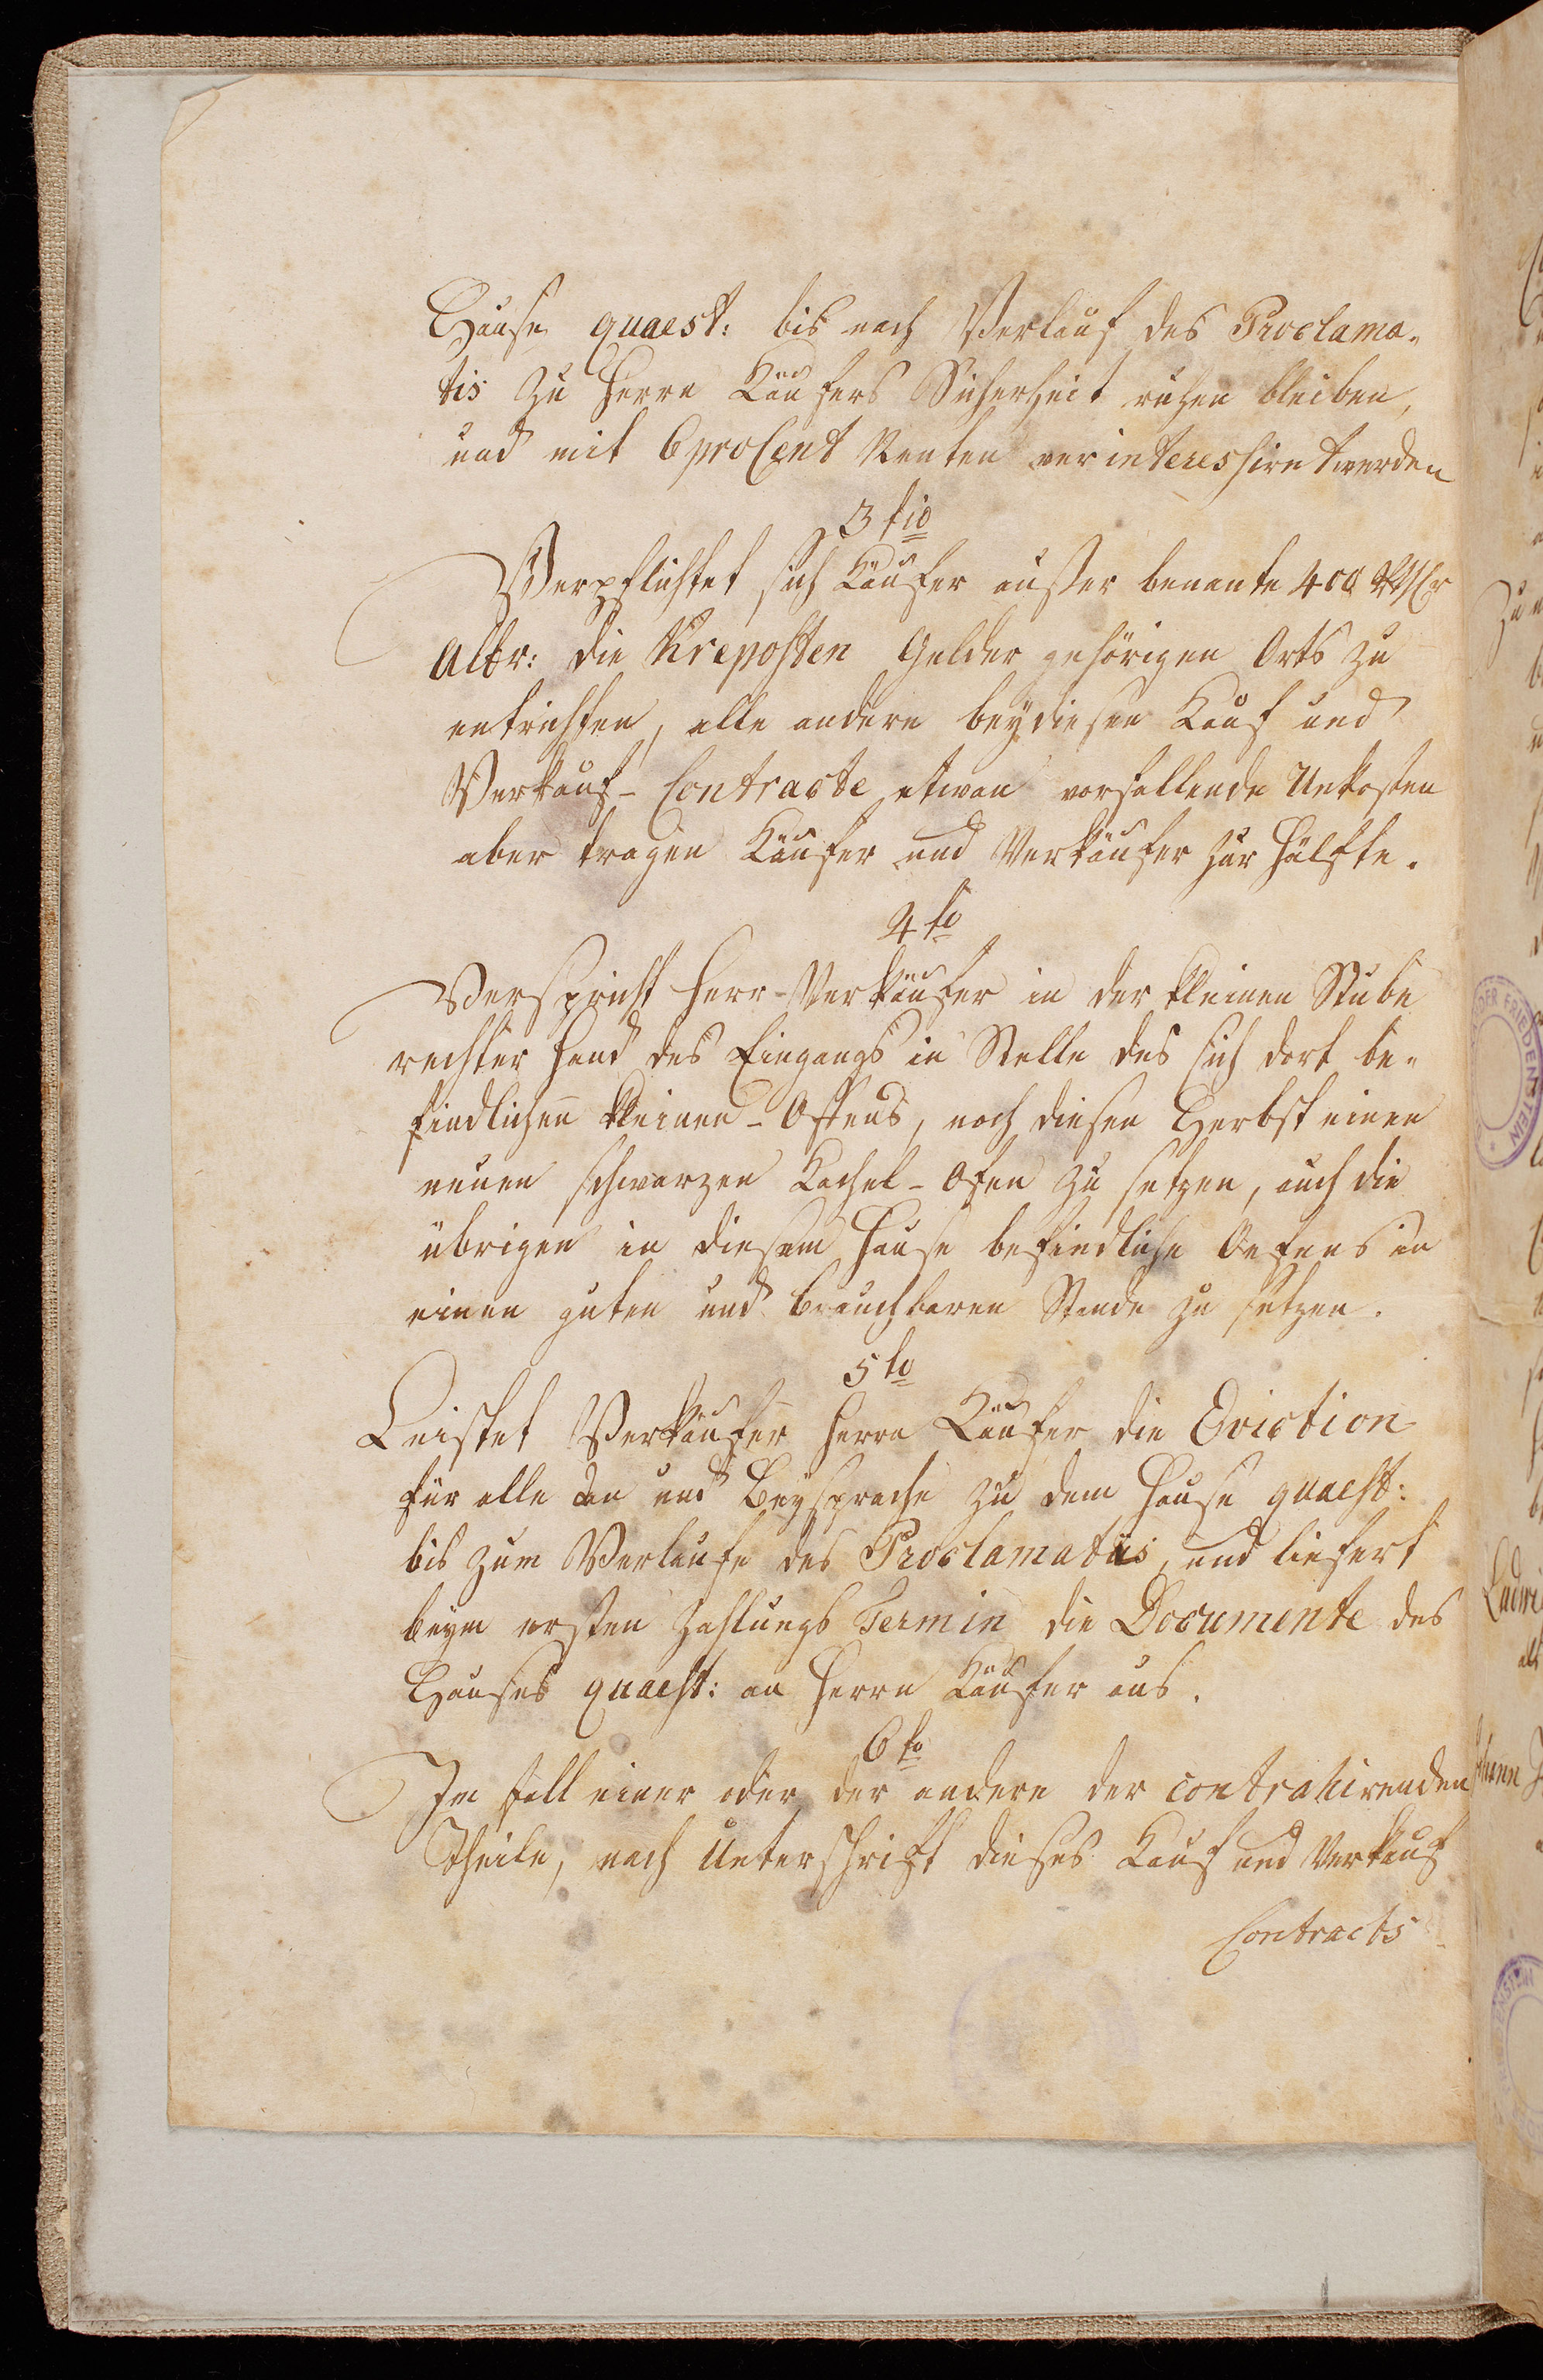 Hause quaest: bis nach Verlauf des Proclama-
tis zu Herrn Käufers Sicherheit ruhen bleiben,
und mit 6 pro Cent Renten verinteressiret werden
3tio
Verpflichtet sich Käufer außer benante 400 Rthlr
Albr: die Kreposten Gelder gehörigen Orts zu
entrichten, alle andere bey diesen Kauf und
Verkauf-Contracte etwan vorfallende Unkosten
aber tragen Käufer und Verkäufer zur Hälfte.
4to
Verspricht Herr-Verkäufer in der kleinen Stube
rechter Hand des Eingangs in Stelle des sich dort be-
findlichen kleinen-Ofens, noch diesen Herbst einen
neuen schwarzen Kachel-Ofen zu setzen, auch die
übrigen in diesem Hause befindliche Oefens in
einen guten und brauchbaren Stande zu setzen.
5to
Leistet Verkäufer Herrn Käufer die Eviction
für alle An und Beysprache zu dem Hause quaest:
bis zum Verlaufe des Proclamatis, und liefert
beym ersten Zahlungs Termin die Documente des
Hauses quaest: an Herrn Käufer aus.
6to
Im fall einer oder der andere der contrahirenden
Theile, nach Unterschrift dieses Kauf und Verkauf
Contracts